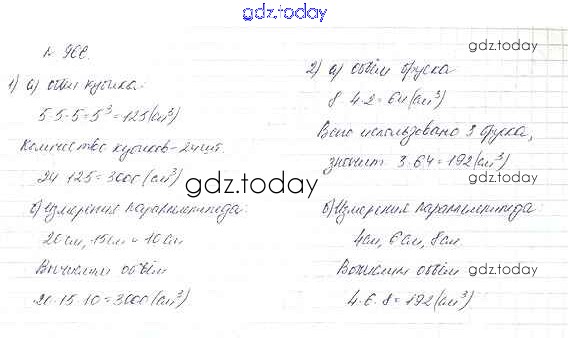 gdz.today
gdz.today
1) а) объём кубика:
5·5·5=5³=125(см³)
Количество кубиков-24шт.
24·125=3000(см³)
gdz.today
б) Измерения параллелепипеда:
20см, 15см и 10см
Вычислим объём
20·15·10=3000(см³)
2) а) объём бруска
8·4·2=64(см³)
Всего использовано 3 бруска,
значит 3·64=192(см³)
gdz.today
б) Измерения параллелепипеда:
4см, 6см, 8см.
Вычислим объём
gdz.today
4·6·8=192(см³)